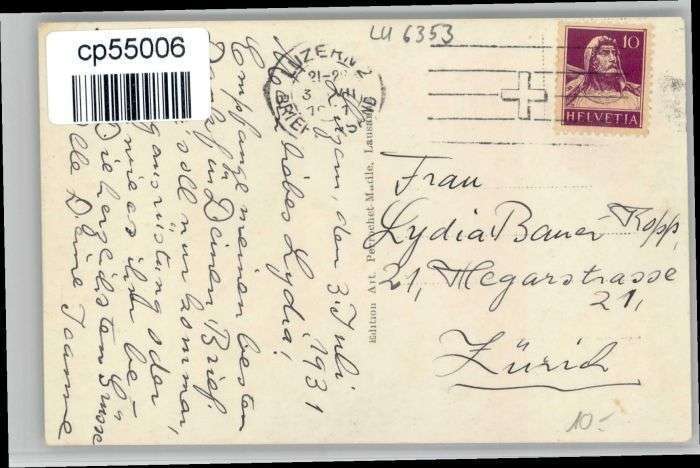 cp55006
LU 6353
LUZERN 2
BRIEF
10
HELVETIA
Luzern, den 3. Juli 1931
Liebes Lydia!
Empfange meinen besten
Dank für Deinen Brief.
soll nur kommen,
ausrüstung oder
wie es ihm be-
Die herzlichsten Grüsse
Alle Deine Jeanne
Edition Art. Perrochet-Matile, Lausanne
Frau
Lydia Bauer-Kopp,
21, Hegarstrasse
21,
Zürich
10.-